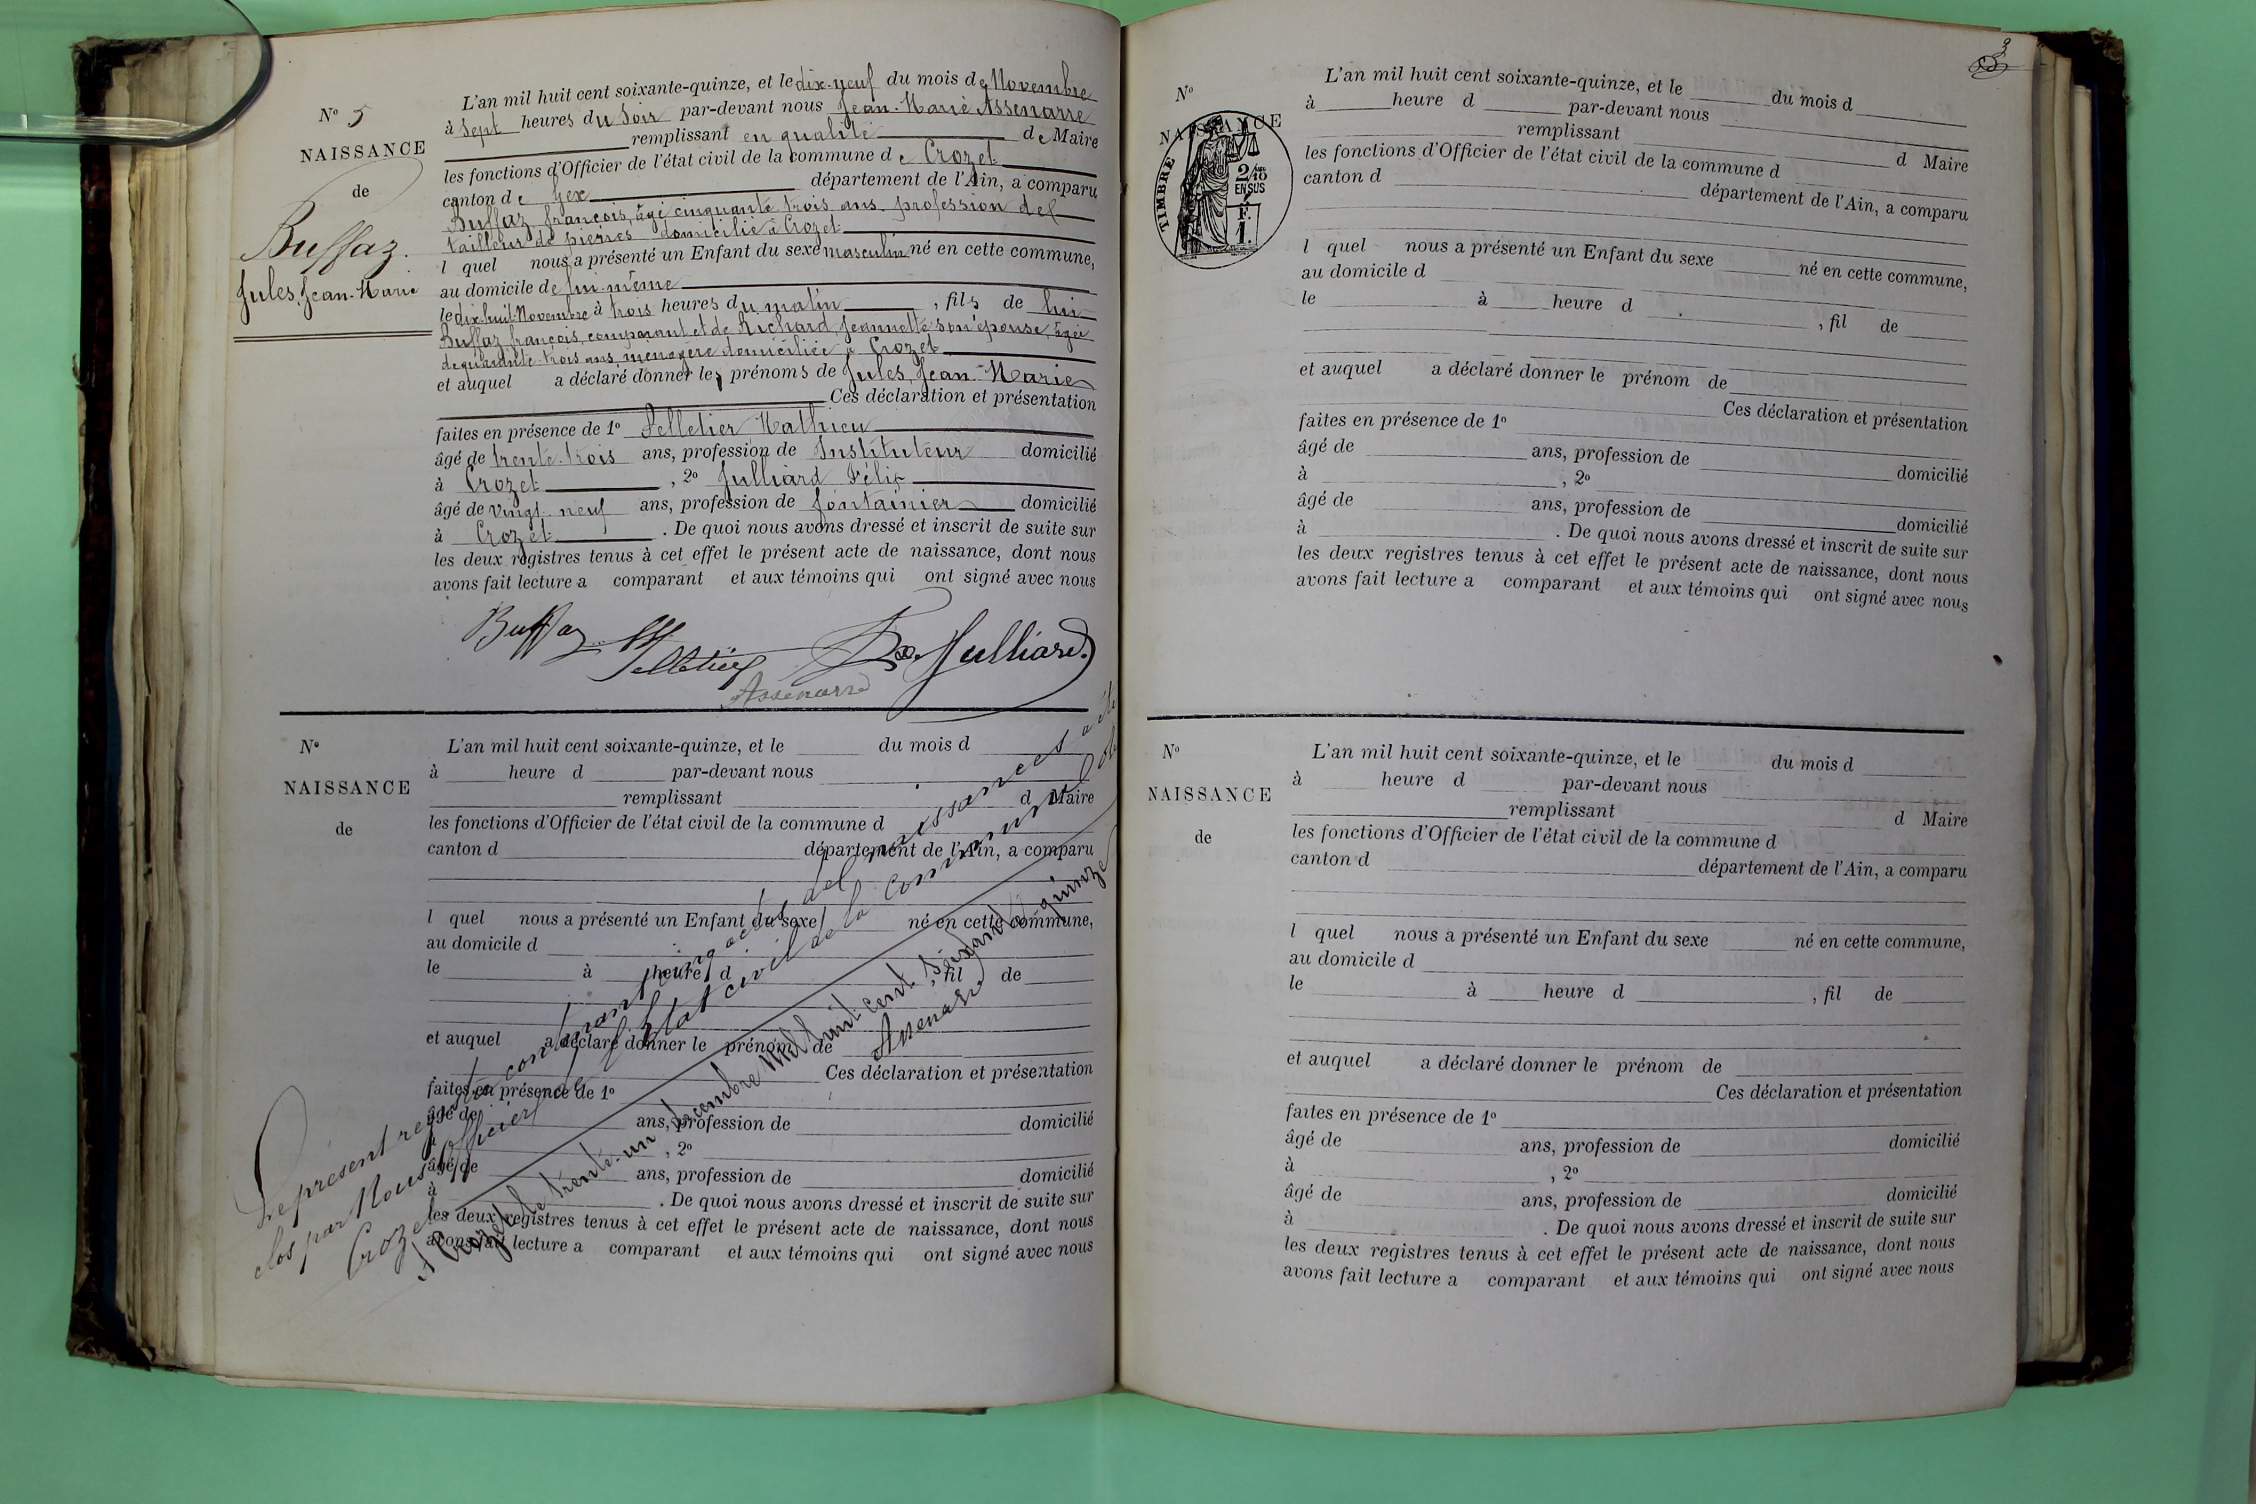 N° 5
NAISSANCE
de
Buffaz.
Jules, Jean-Marie
L'an mil huit cent soixante-quinze, et le dix-neuf du mois de Novembre
à Sept heures du Soir par-devant nous Jean-Marie Assenarre
remplissant en qualité de Maire
les fonctions d'Officier de l'état civil de la commune de Crozet
canton de Gex département de l'Ain, a comparu
Buffaz, françois, âgé cinquante trois ans, profession de
tailleur de pierres domicilié à Crozet
l quel nous a présenté un Enfant du sexe masculin né en cette commune,
au domicile de lui-même
le dix-huit Novembre à trois heures du matin , fils de lui
Buffaz, françois, comparant et de Richard, Jeannette son épouse, âgée
de quarante-trois ans, ménagère domiciliée à Crozet
et auquel a déclaré donner les prénoms de Jules, Jean-Marie
Ces déclaration et présentation
faites en présence de 1° Pelletier Mathieu
âgé de trente-trois ans, profession de Instituteur domicilié
à Crozet , 2° Julliard Félix
âgé de vingt-neuf ans, profession de fontainier domicilié
à Crozet . De quoi nous avons dressé et inscrit de suite sur
les deux registres tenus à cet effet le présent acte de naissance, dont nous
avons fait lecture a comparant et aux témoins qui ont signé avec nous
Buffaz
Pelletier
Julliard
Assenarre
N°
NAISSANCE
de
L'an mil huit cent soixante-quinze, et le du mois d
à heure d par-devant nous
remplissant d Maire
les fonctions d'Officier de l'état civil de la commune d
canton d département de l'Ain, a comparu
l quel nous a présenté un Enfant du sexe né en cette commune,
au domicile d
le à heure d , fil de
et auquel a déclaré donner le prénom de
Ces déclaration et présentation
faites en présence de 1°
âgé de ans, profession de domicilié
à , 2°
âgé de ans, profession de domicilié
à . De quoi nous avons dressé et inscrit de suite sur
les deux registres tenus à cet effet le présent acte de naissance, dont nous
avons fait lecture a comparant et aux témoins qui ont signé avec nous
Le présent registre contenant cinq actes de naissances a été
clos par Nous Officier de l'Etat civil de la commune de
Crozet
A Crozet le trente-un décembre Mil huit cent soixante quinze
Assenarre
3
N°
NAISSANCE
TIMBRE
2/10
EN SUS
F.
1.
L'an mil huit cent soixante-quinze, et le du mois d
à heure d par-devant nous
remplissant d Maire
les fonctions d'Officier de l'état civil de la commune d
canton d département de l'Ain, a comparu
l quel nous a présenté un Enfant du sexe né en cette commune,
au domicile d
le à heure d , fil de
et auquel a déclaré donner le prénom de
Ces déclaration et présentation
faites en présence de 1°
âgé de ans, profession de domicilié
à , 2°
âgé de ans, profession de domicilié
à . De quoi nous avons dressé et inscrit de suite sur
les deux registres tenus à cet effet le présent acte de naissance, dont nous
avons fait lecture a comparant et aux témoins qui ont signé avec nous
N°
NAISSANCE
de
L'an mil huit cent soixante-quinze, et le du mois d
à heure d par-devant nous
remplissant d Maire
les fonctions d'Officier de l'état civil de la commune d
canton d département de l'Ain, a comparu
l quel nous a présenté un Enfant du sexe né en cette commune,
au domicile d
le à heure d , fil de
et auquel a déclaré donner le prénom de
Ces déclaration et présentation
faites en présence de 1°
âgé de ans, profession de domicilié
à , 2°
âgé de ans, profession de domicilié
à . De quoi nous avons dressé et inscrit de suite sur
les deux registres tenus à cet effet le présent acte de naissance, dont nous
avons fait lecture a comparant et aux témoins qui ont signé avec nous